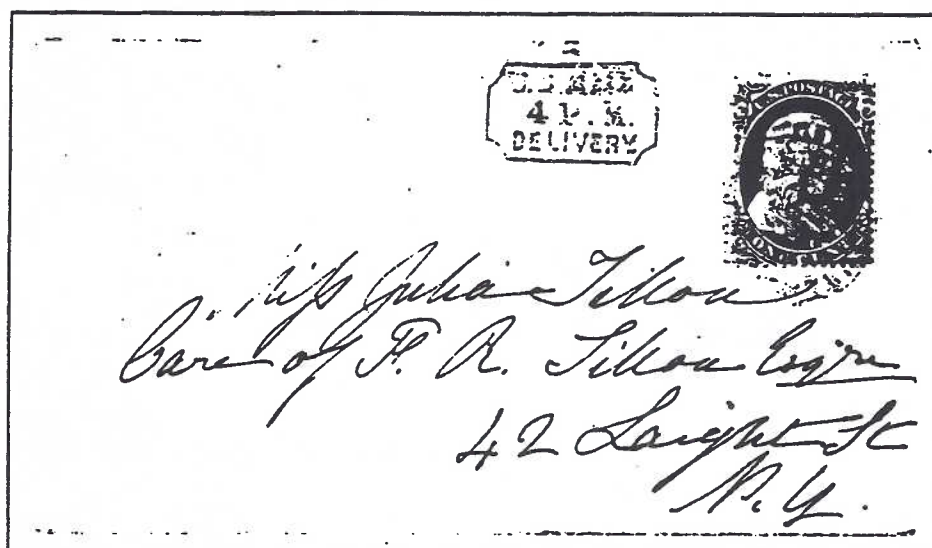 U.S. MAIL
4 P.M.
DELIVERY
U.S. POSTAGE
ONE
Miss Julia Tillou
Care of F. R. Tillou Esqre
42 Laight St
N.Y.